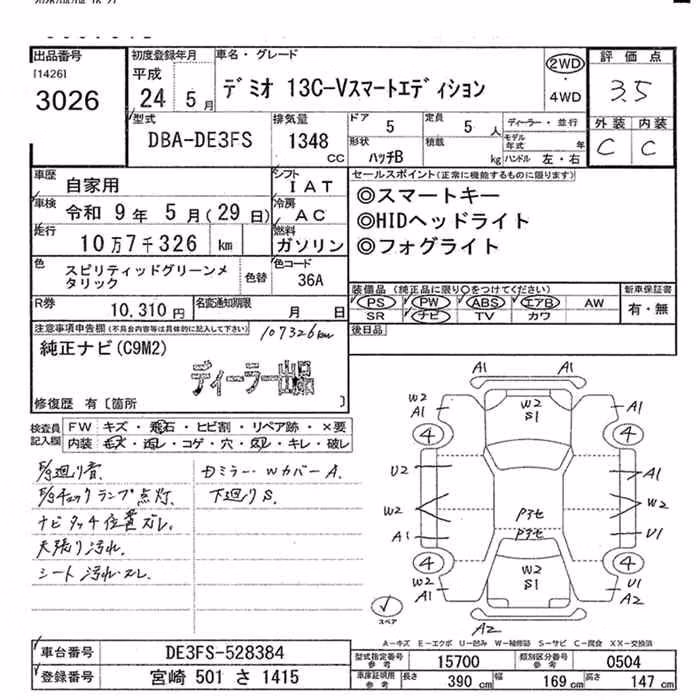 出品番号
[1426]
3026
初度登録年月
平成
24 5月
車名・グレード
デミオ 13C-Vスマートエディション
2WD
・
4WD
評価点
3.5
外装 内装
C C
型式
DBA-DE3FS
排気量
1348
CC
ドア 5
定員 5 人
形状 ハッチB
積載 kg
ディーラー・並行
モデル年式 年
ハンドル 左・右
車歴 自家用
車検 令和 9年 5月(29日)
走行 10万7千326 km
色 スピリティッドグリーンメタリック
色替
シフト IAT
冷房 AC
燃料 ガソリン
色コード 36A
R券 10.310円
名変通知期限 月 日
セールスポイント(正常に機能するものに限ります)
◎スマートキー
◎HIDヘッドライト
◎フォグライト
装備品(純正品に限り○をつけてください)
PS PW ABS エアB AW
SR ナビ TV カワ
新車保証書
有・無
後日品
注意事項申告欄(不具合内容等は具体的に記入して下さい)
107326km
純正ナビ(C9M2)
ディーラー出品
修復歴 有〔箇所 〕
検査員記入欄
FW キズ・飛石・ヒビ割・リペア跡・×要
内装 キズ・汚レ・コゲ・穴・スレ・キレ・破レ
ナビタッチ位置ズレ.
天張り汚れ.
シート汚れ・スレ.
下廻りS.
A1
W2
A1
W2
S1
A1
4
4
U2
A1
W2
W2
Pアセ
Pアセ
A1
U1
4
4
W2
A1
W2
S1
U1
A1
スペア
A2
A-キズ E-エクボ U-凹み W-補修跡 S-サビ C-腐食 XX-交換済
車台番号 DE3FS-528384
登録番号 宮崎 501 さ 1415
型式指定番号 参考 15700
類別区分番号 参考 0504
車庫証明用 参考 長さ 390 cm 幅 169 cm 高さ 147 cm